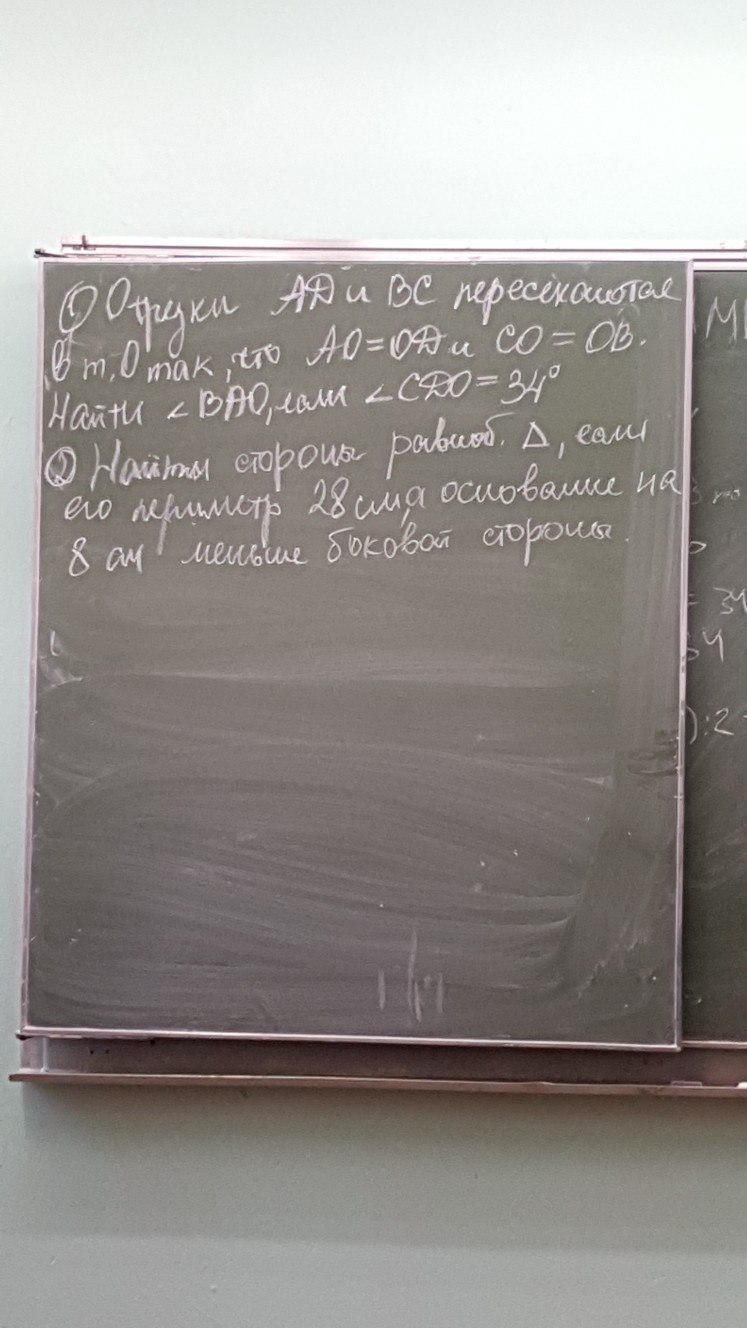 ① Отрезки АД и ВС пересекаются
в т. О так, что АО=ОД и СО=ОВ.
Найти ∠ВАО, если ∠СДО=34°
② Найти стороны равноб. Δ, если
его периметр 28 см, а основание на
8 см меньше боковой стороны.
34
):2